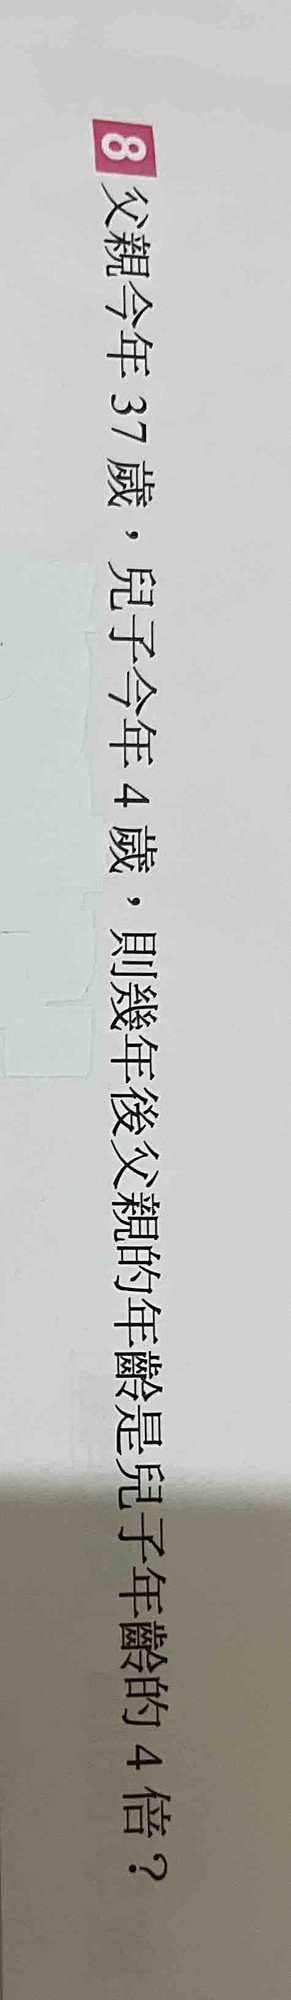 8 父親今年 37 歲，兒子今年 4 歲，則幾年後父親的年齡是兒子年齡的 4 倍？